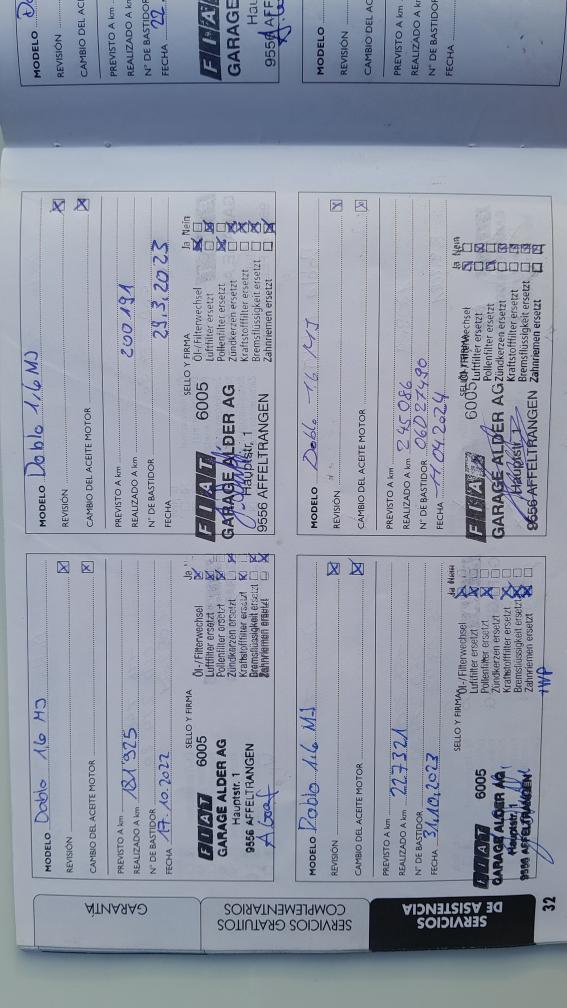 SERVICIOS
DE ASISTENCIA
SERVICIOS GRATUITOS
COMPLEMENTARIOS
GARANTÍA
32
MODELO Doblo 1.6 MJ
REVISIÓN
CAMBIO DEL ACEITE MOTOR
PREVISTO A km
REALIZADO A km 181'925
N° DE BASTIDOR
FECHA 17.10.2022
SELLO Y FIRMA
FIAT 6005
GARAGE ALDER AG
Hauptstr. 1
9556 AFFELTRANGEN
A Graf
Ja
Öl-/Filterwechsel
Luftfilter ersetzt
Pollenfilter ersetzt
Zündkerzen ersetzt
Kraftstofffilter ersetzt
Bremsflüssigkeit ersetzt
Zahnriemen ersetzt
MODELO Doblo 1,6 MJ
REVISIÓN
CAMBIO DEL ACEITE MOTOR
PREVISTO A km
REALIZADO A km 200 191
N° DE BASTIDOR
FECHA 29.3.2023
SELLO Y FIRMA
FIAT 6005
GARAGE ALDER AG
Hauptstr. 1
9556 AFFELTRANGEN
Ja Nein
Öl-/Filterwechsel
Luftfilter ersetzt
Pollenfilter ersetzt
Zündkerzen ersetzt
Kraftstofffilter ersetzt
Bremsflüssigkeit ersetzt
Zahnriemen ersetzt
MODELO Doblo 1.6 MJ
REVISIÓN
CAMBIO DEL ACEITE MOTOR
PREVISTO A km
REALIZADO A km 227321
N° DE BASTIDOR
FECHA 31.10.2023
SELLO Y FIRMA
FIAT 6005
GARAGE ALDER AG
Hauptstr. 1
9556 AFFELTRANGEN
Ja Nein
Öl-/Filterwechsel
Luftfilter ersetzt
Pollenfilter ersetzt
Zündkerzen ersetzt
Kraftstofffilter ersetzt
Bremsflüssigkeit ersetzt
Zahnriemen ersetzt
MODELO Doblo 1.6 MJ
REVISIÓN
CAMBIO DEL ACEITE MOTOR
PREVISTO A km
REALIZADO A km 245 086
N° DE BASTIDOR 06D27490
FECHA 11.04.2024
FIAT 6005
GARAGE ALDER AG
Hauptstr. 1
9556 AFFELTRANGEN
Ja Nein
Luftfilter ersetzt
Pollenfilter ersetzt
Zündkerzen ersetzt
Kraftstofffilter ersetzt
Bremsflüssigkeit ersetzt
Zahnriemen ersetzt
MODELO
REVISIÓN
CAMBIO DEL ACE
PREVISTO A km
REALIZADO A km
N° DE BASTIDOR
FECHA 22.
FIA
GARAGE
9556 AFF
MODELO
REVISIÓN
CAMBIO DEL AC
PREVISTO A km
REALIZADO A km
N° DE BASTIDO
FECHA